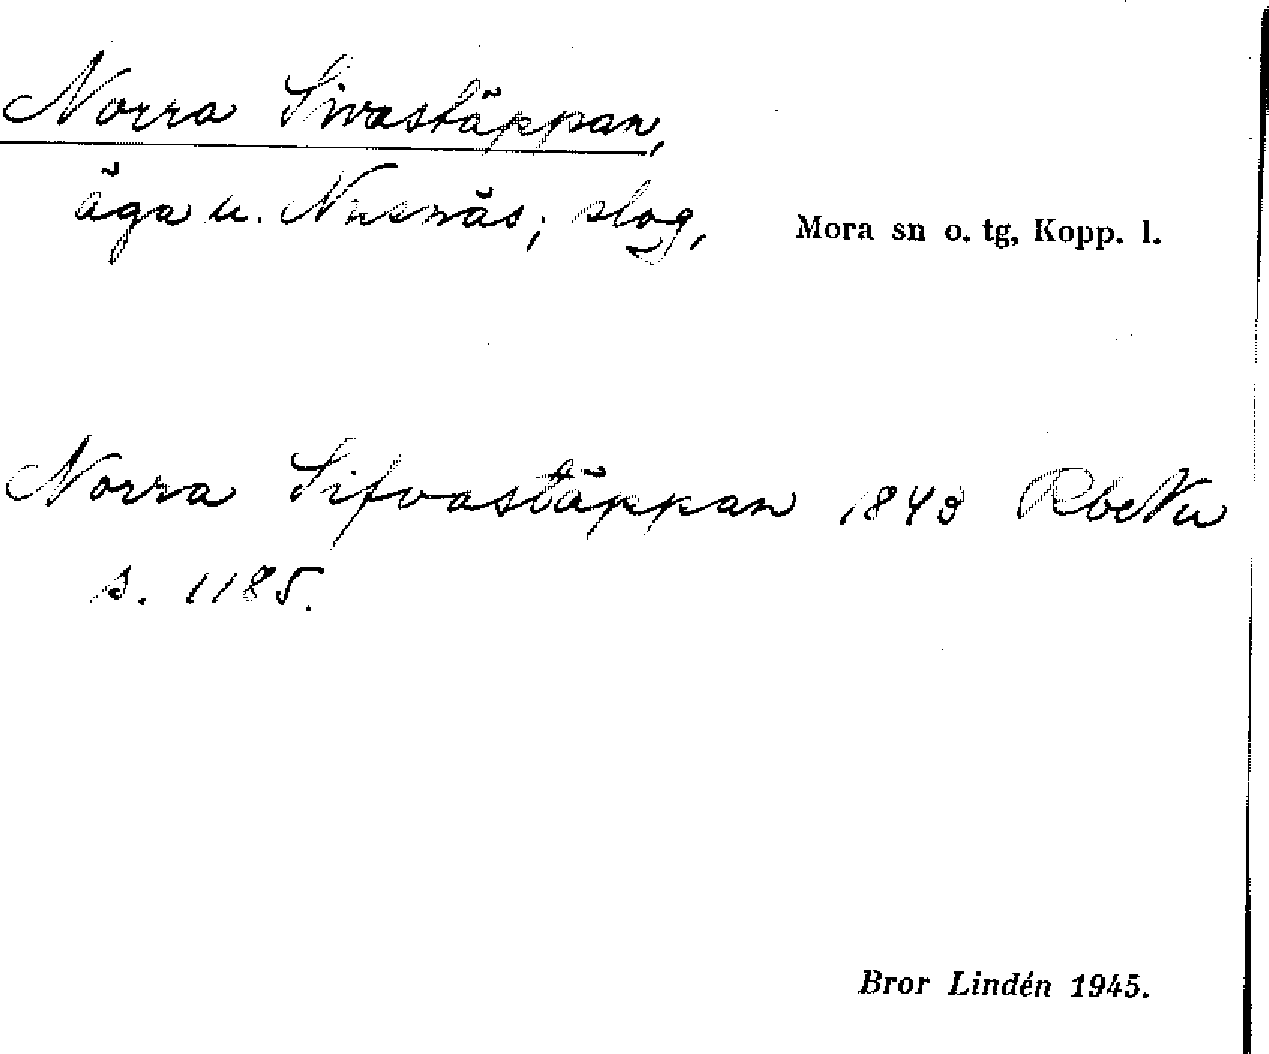 Norra Sivastäppan,
äga u. Nusnäs; slog,
Mora sn o. tg, Kopp. l.
Norra Sifvastäppan 1843 RbeNu
s. 1185.
Bror Lindén 1945.